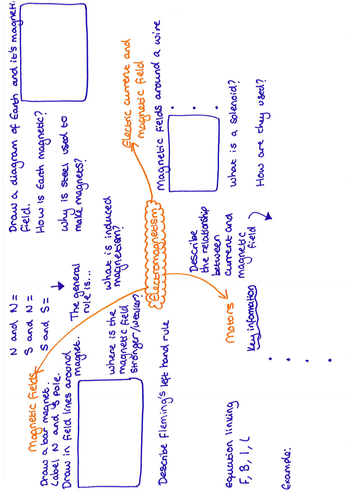 Electromagnetism
Magnetic fields
Draw a bar magnet
Label N and S pole.
Draw in field lines around
magnet.
N and N =
S and N =
S and S =
The general
rule is...
Where is the
magnetic field
stronger/weaker?
what is induced
magnetism?
Draw a diagram of Earth and it's magnetic
field.
How is Earth magnetic?
why is steel used to
make magnets?
Electric current and
magnetic field
Magnetic fields around a wire
What is a solenoid?
How are they used?
Describe
the relationship
between
current and
magnetic
field
Motors
Key information
Describe Fleming's left hand rule
equation linking
F, B, I, L
Example: